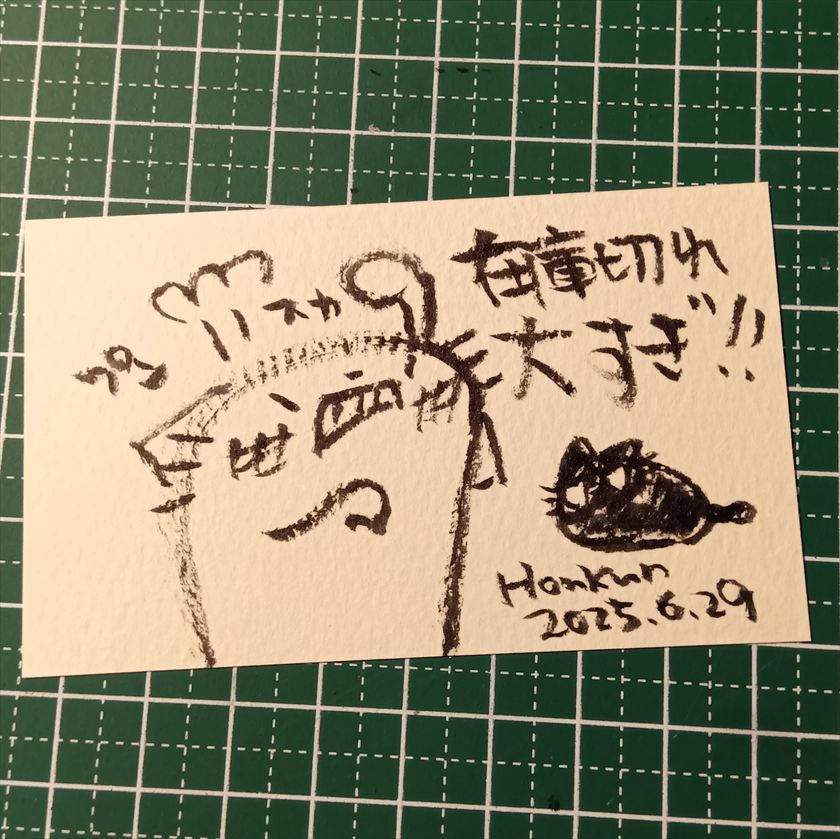 在庫切れ
大すぎ!!
スカ
Honkun
2025.6.29